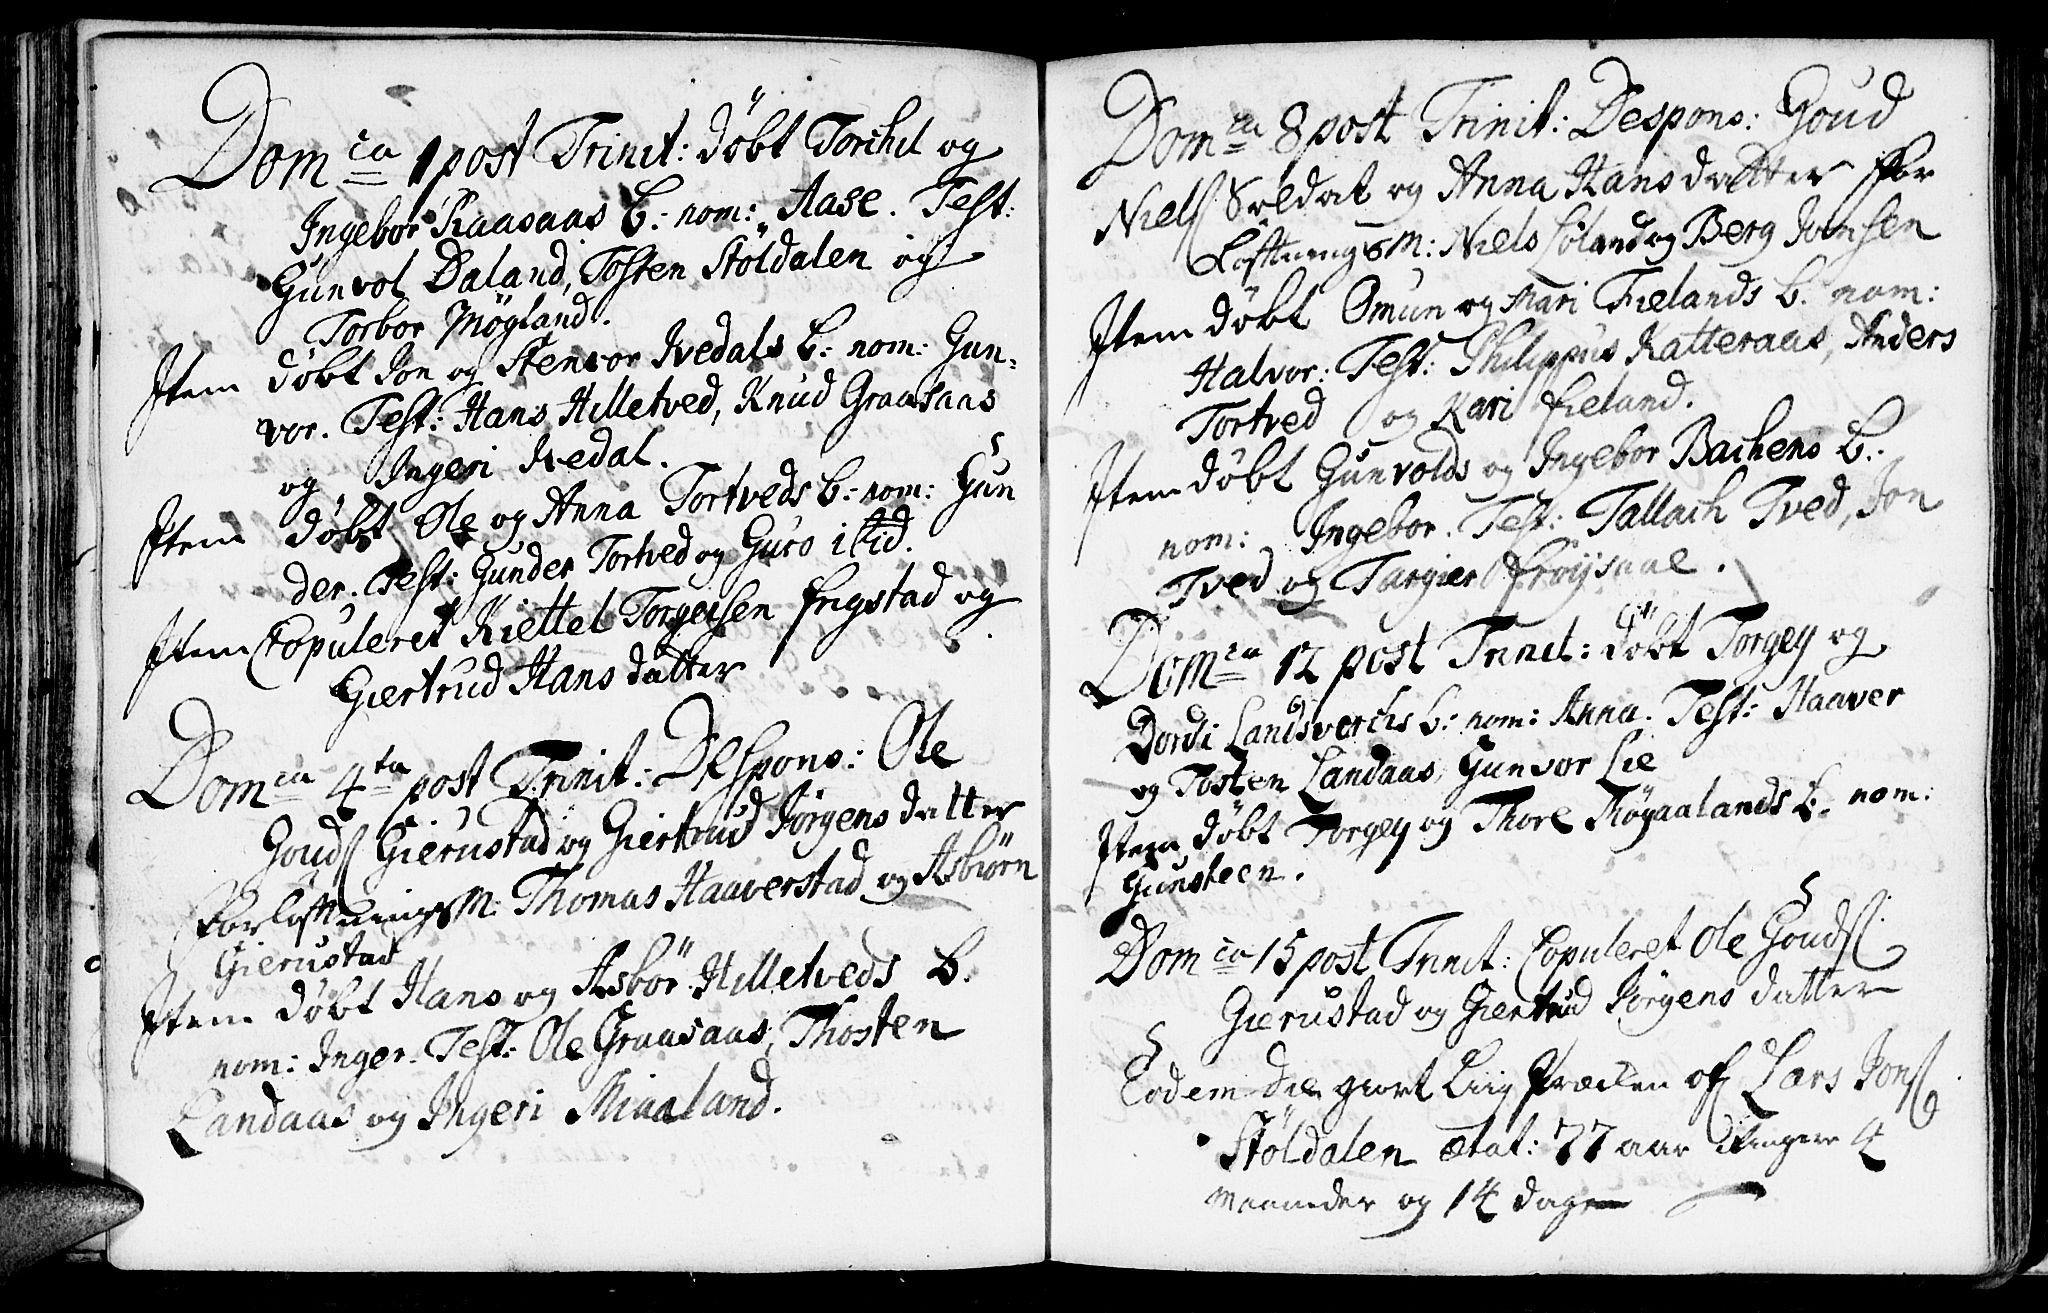 Dom ca 1 post Trinit: döbt Torchel og
Ingebor Raasaas b: nom: Aase. Test:
Gunvol Daland, Tosten Stöldalen og
Torbor Mögland.
Item döbt Jon og Stenvor Ivedals b: nom: Gun-
vor. Test: Hans Hilletved, Knud Graasaas
og Ingeri Ivedal.
Item döbt Ole og Anna Tortveds b: nom: Gun
der. Test: Gunder Tortved og Guro ibid.
Item Copuleret Kiettel Torgersen frigstad og
Giertrud Hansdatter
Dom ca 4 ta post Trinit: Despons: Ole
Gouds Gierustad og Giertrud Jörgensdatter
forlöftnings M: Thomas Haaverstad og Asbiörn
Gierustad
Item döbt Hans og Asbör Hilletveds b.
nom: Inger. Test: Ole Graasaas, Thosten
Landaas og Ingeri Miaaland.
Dom ca 8 post Trinit: Despons: Goud
Niels Soldat og Anna Hansdatter for
Löftnings M: Niels Löland og Berg Jonsen
Item döbt Omun og Mari Fielands b. nom:
Halvor: Test: Philippus Katteraas, Anders
Tortved og Kari fieland.
Item döbt Gunvolds og Ingebor Bachens b.
nom: Ingebor. Test: Tallach Tved, Jon
Tved og Targier Fröysaae.
Dom ca 12 post Trinit: döbt Torgey og
Dordi Landsverchs b: nom: Anna. Test: Haaver
og Tosten Landaas, Gunvor Lie
Item döbt Torgey og Thore Möyaalands b. nom:
Gunsteen.
Dom ca 15 post Trinit: Copuleret Ole Gouds:
Gierustad og Giertrud Jörgensdatter
Eodem die giort Liig Præcken of Lars Jons:
Stöldalen ætat: 77 aar 4
Maaneder og 14 dage